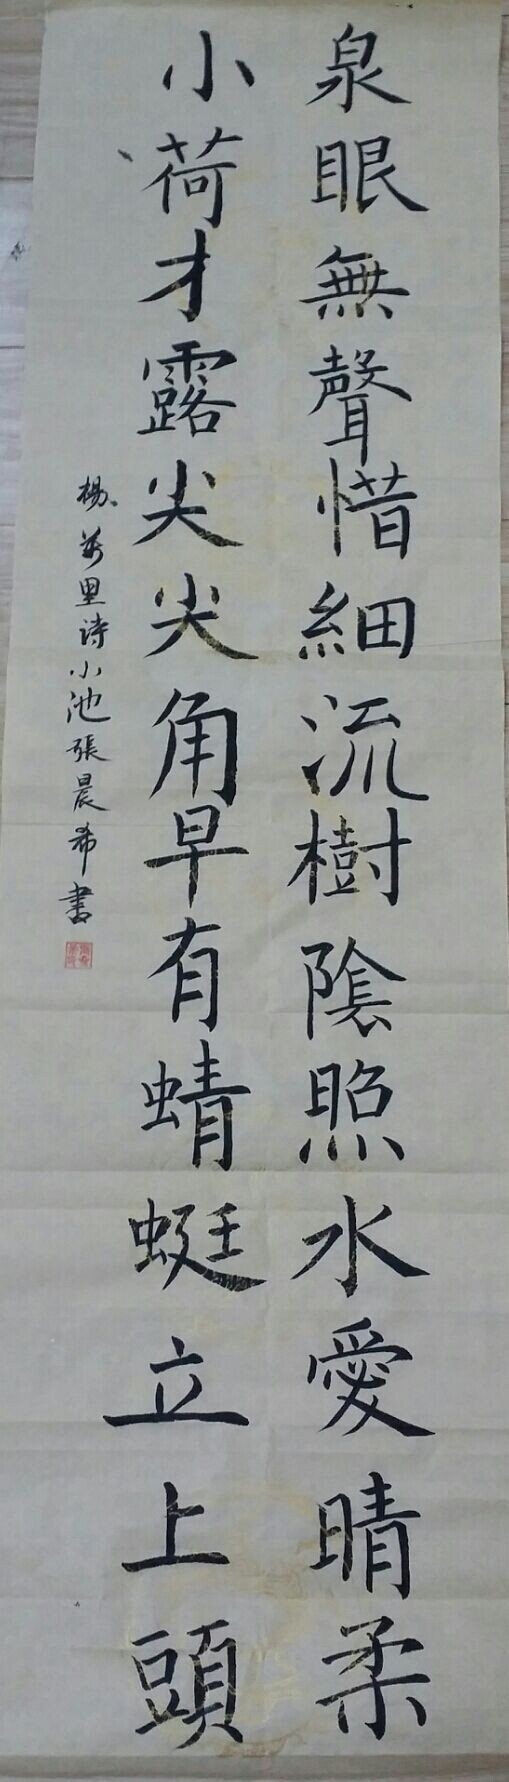 泉眼無聲惜細流樹陰照水愛晴柔
小荷才露尖尖角早有蜻蜓立上頭
楊萬里诗小池張晨希書